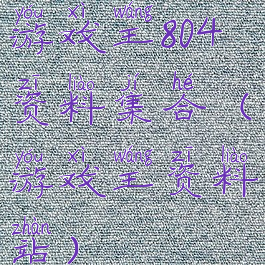 yóu xì wáng
游戏王804
zī liào jí hé
资料集合（
yóu xì wáng zī liào
游戏王资料
zhàn
站）